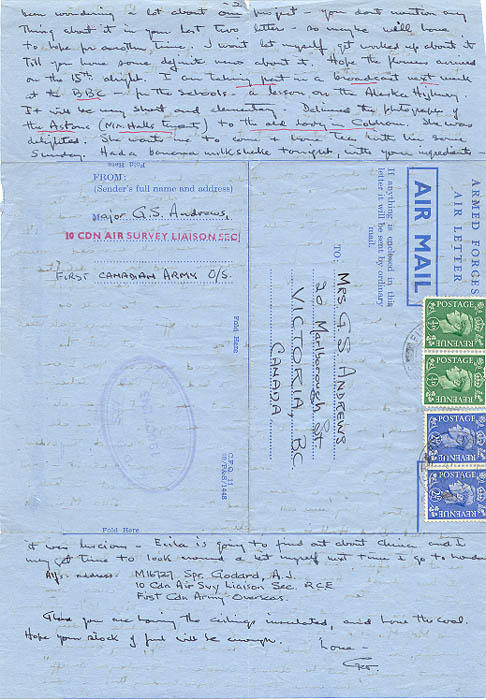 -2-
been wondering a lot about our project - you dont mention any
thing about it in your last two letters - so maybe we'll have
to hope for another time. I wont let myself get worked up about it
Till you have some definite news about it. Hope the flowers arrived
on the 15th alright. I am taking part in a broadcast next week
at the BBC - for the schools - a lesson on the Alaska Highway
It will be very short and elementary. Delivered the photographs of
the Astons (Mrs Halls) to the old lady in Cobham. She was
delighted. She wants me to come & have tea with her some
Sunday. Had a banana milkshake tonight, with your ingredients -
Fold Here
FROM:
(Sender's full name and address)
Major G.S. Andrews,
10 CDN AIR SURVEY LIAISON SEC
FIRST CANADIAN ARMY O/S.
Fold Here
C.F.Q. 11
ARMED FORCES
AIR LETTER
AIR MAIL
If anything is enclosed in this
letter it will be sent by ordinary
mail.
TO:
MRS G S ANDREWS
20 Marlborough St
VICTORIA, B.C.
CANADA
POSTAGE
REVENUE
POSTAGE
REVENUE
POSTAGE
REVENUE
POSTAGE
REVENUE
Fold Here
it was luscious - is going to find out about and I
may get time to look around a bit myself next time I go to London
address M16727 Spr. Godard, A.J.
10 Cdn Air Svy Liaison Sec. RCE
First Cdn Army Overseas.
Glad you are having the ceilings insulated, and have the coal.
Hope your stock of fuel will be enough. Love -